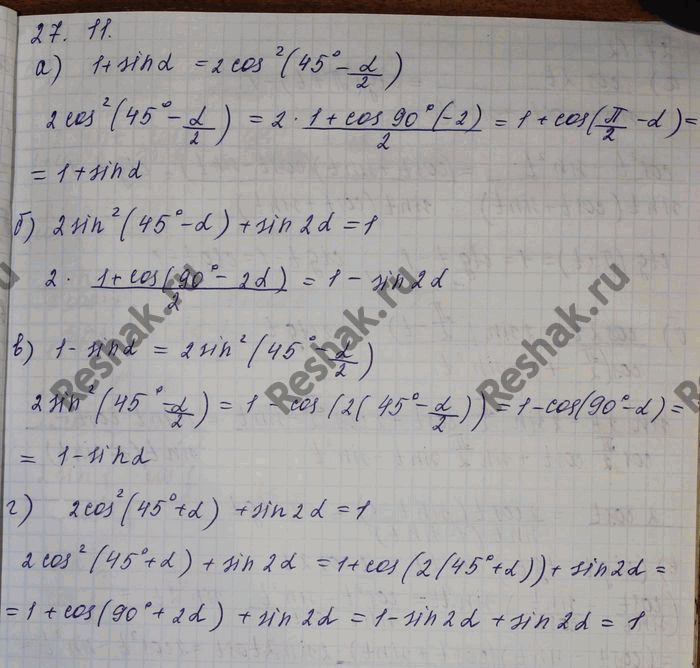 27. 11.
а) 1+sinα = 2cos²(45° - α/2)
2cos²(45° - α/2) = 2 · (1+cos 90°(-2))/2 = 1+cos(π/2 - α) =
= 1+sinα
б) 2sin²(45°-α) + sin2α = 1
2 · (1+cos(90°- 2α))/2 = 1 - sin2α
в) 1-sinα = 2sin²(45°- α/2)
2sin²(45° - α/2) = 1 - cos(2(45°- α/2)) = 1-cos(90°-α) =
= 1-sinα
г) 2cos²(45°+α) + sin2α = 1
2cos²(45°+α) + sin2α = 1+cos(2(45°+α)) + sin2α =
= 1+cos(90°+2α) + sin2α = 1-sin2α + sin2α = 1
Reshak.ru
Reshak.ru